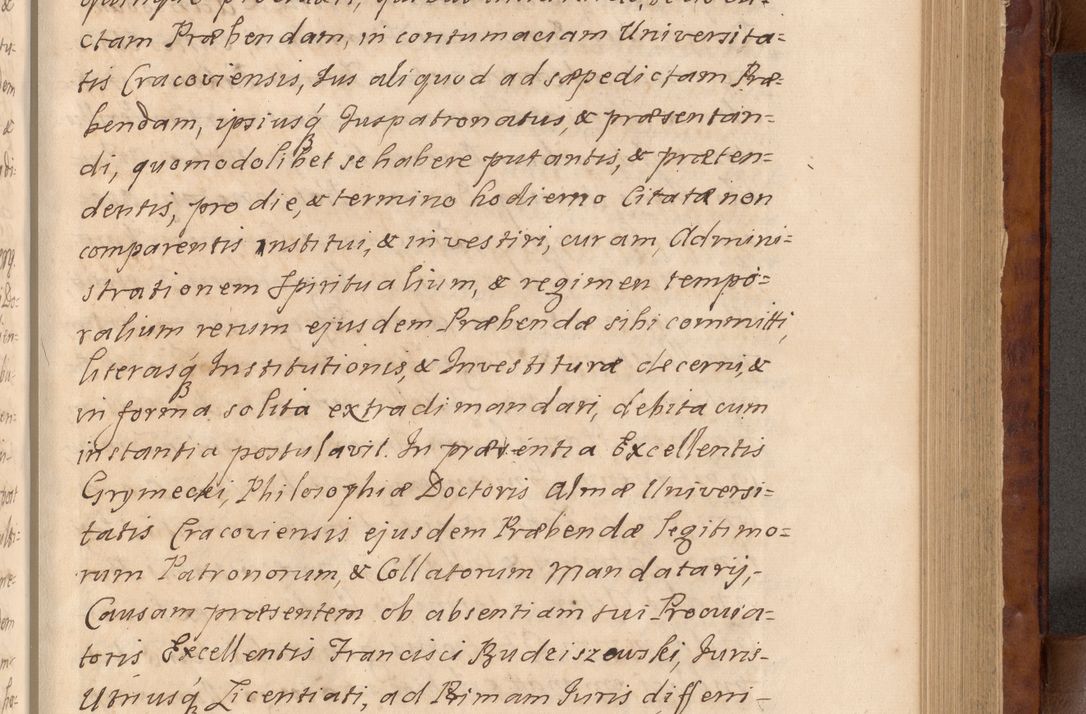 ctam Præbendam, in contumaciam Universita=
tis Cracoviensis, Jus aliquod ad sæpedictam Præ=
bendam, ipsiusq́ Juspatronatus, & præsentan=
di, quomodolibet se habere putantis, & præten=
dentis, pro die, & termino hodierno Citatæ non
comparentis institui, & investiri, curam, Admini=
strationem Spiritualium, & regimen tempo=
ralium rerum ejusdem Præbendæ sibi committi,
literasq́ Institutionis, & Investituræ decerni, &
in forma solita extradi mandari, debita cum
instantia postulavit. In præsentia Excellentis
Grymecki, Philosophiæ Doctoris Almæ Universi=
tatis Cracoviensis ejusdem Præbendæ legitimo=
rum Patronorum, & Collatorum Mandatarij,-
Causam præsentem ob absentiam sui Procura=
toris Excellentis Francisci Rudziszewski, Juris-
Utriusq́ Licentiati, ad Primam Juris differri-